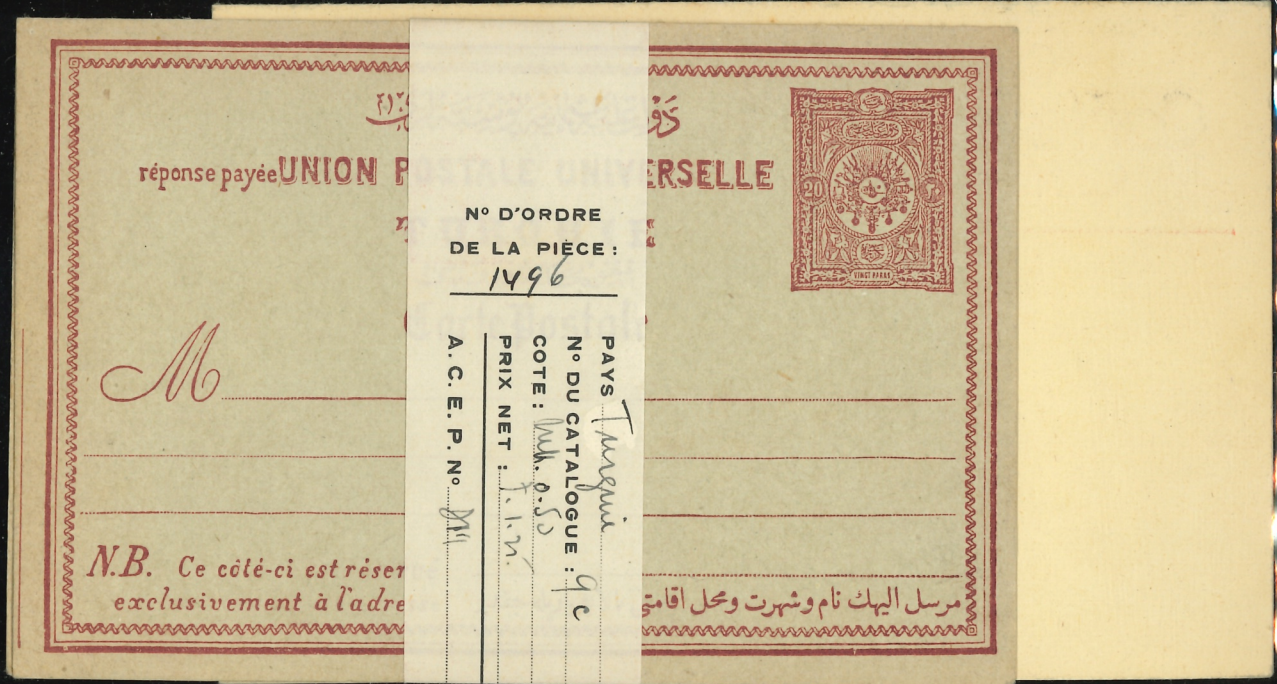 réponse payée UNION POSTALE UNIVERSELLE
TURQUIE
Carte postale
20
VINGT PARAS
M
N.B. Ce côté-ci est réser
exclusivement à l'adre
مرسل اليهك نام وشهرت ومحل اقامتى
Nº D'ORDRE
DE LA PIÈCE:
1496
PAYS Turquie
Nº DU CATALOGUE: 9c
COTE: 0.50
PRIX NET:
A.C.E.P. Nº